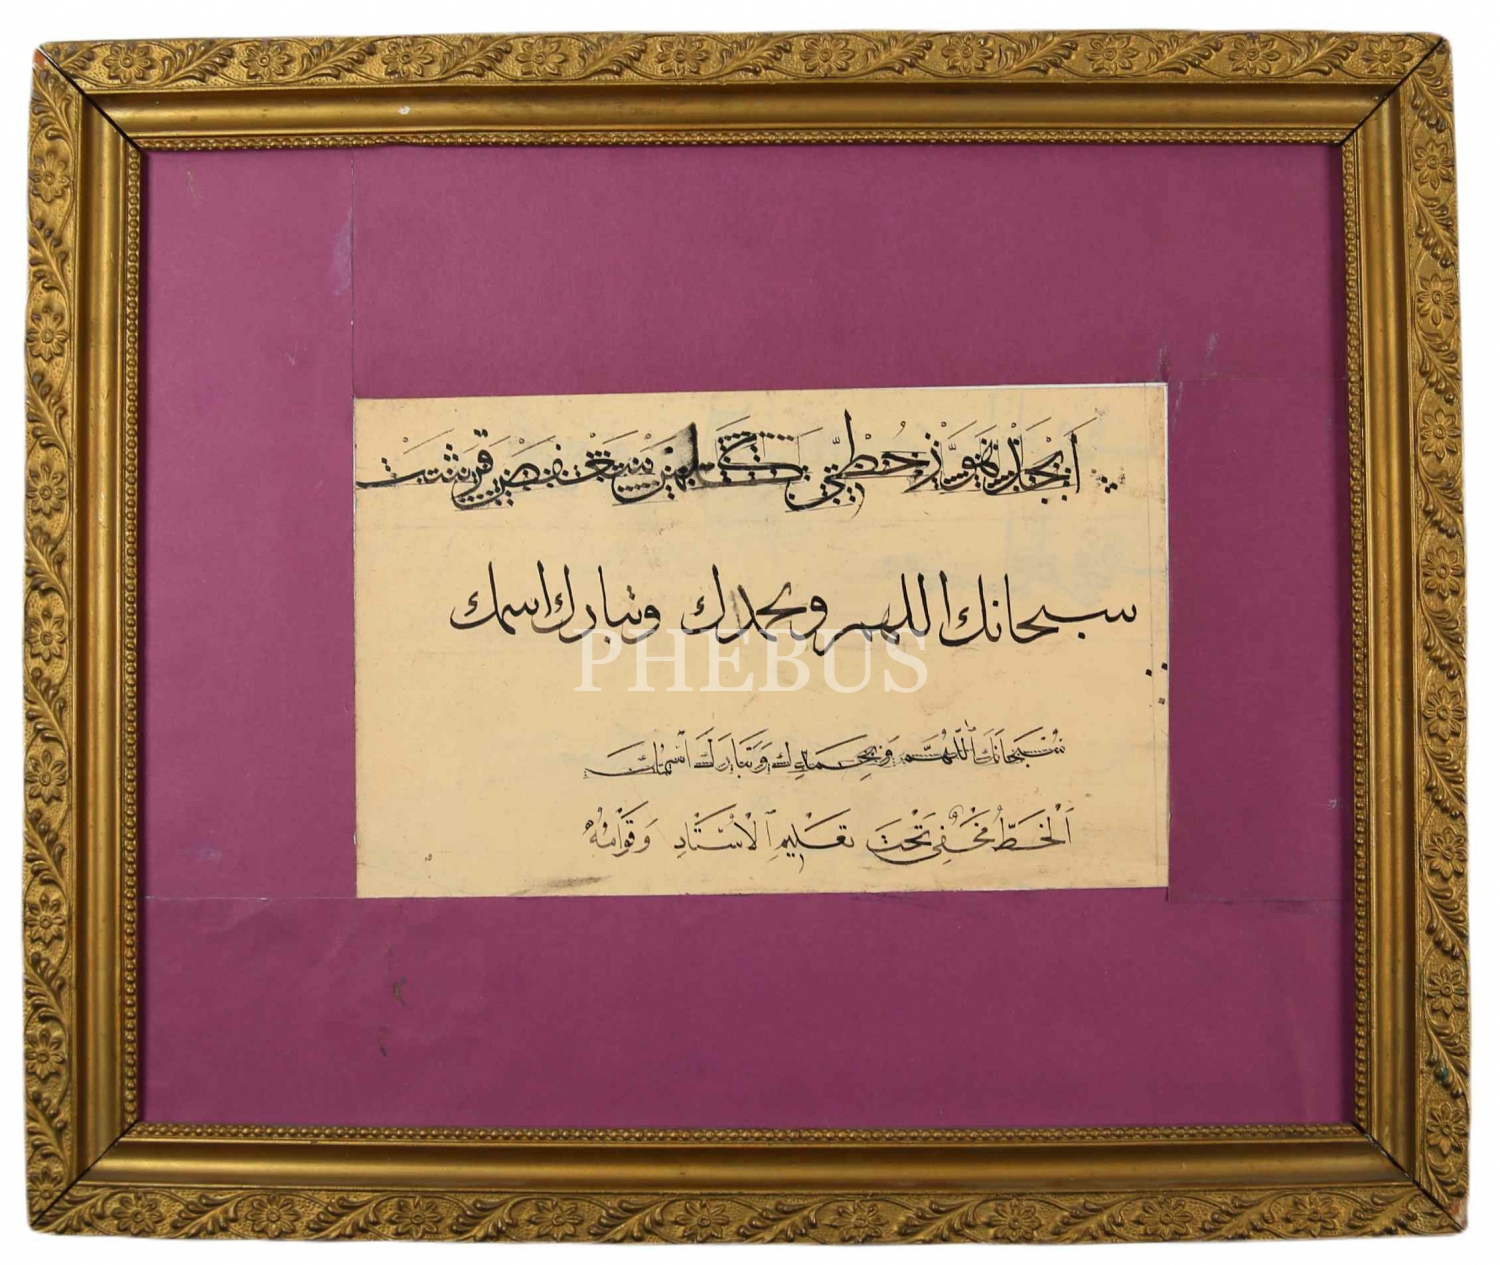 ابجد هوز حطي كلمن سعفص قرشت
سبحانك اللهم وبحمدك وتبارك اسمك
PHEBUS
سُبْحَانَكَ اللّٰهُمَّ وَبِحَمْدِكَ وَتَبَارَكَ اسْمُكَ
اَلْخَطُّ مَخْفِي تَحْتَ تَعْلِيمِ الْاُسْتَادِ وَقَوَامُهُ